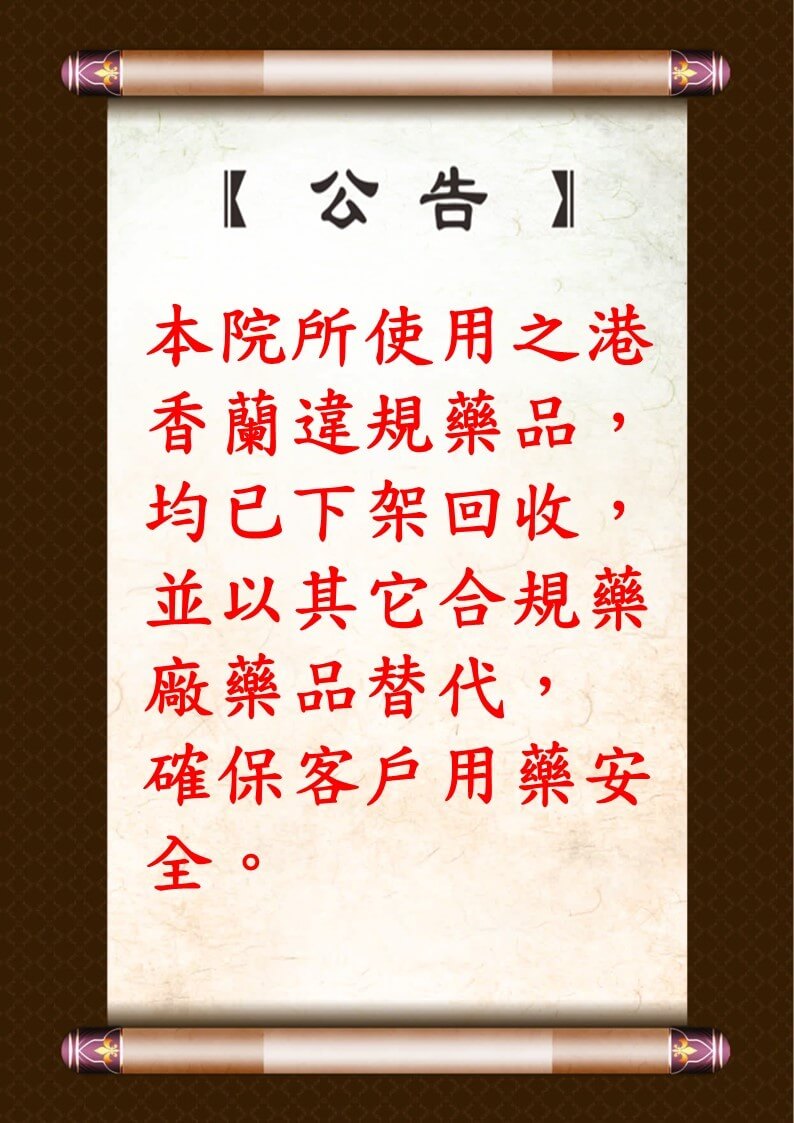 【 公告 】
本院所使用之港
香蘭違規藥品，
均已下架回收，
並以其它合規藥
廠藥品替代，
確保客戶用藥安
全。